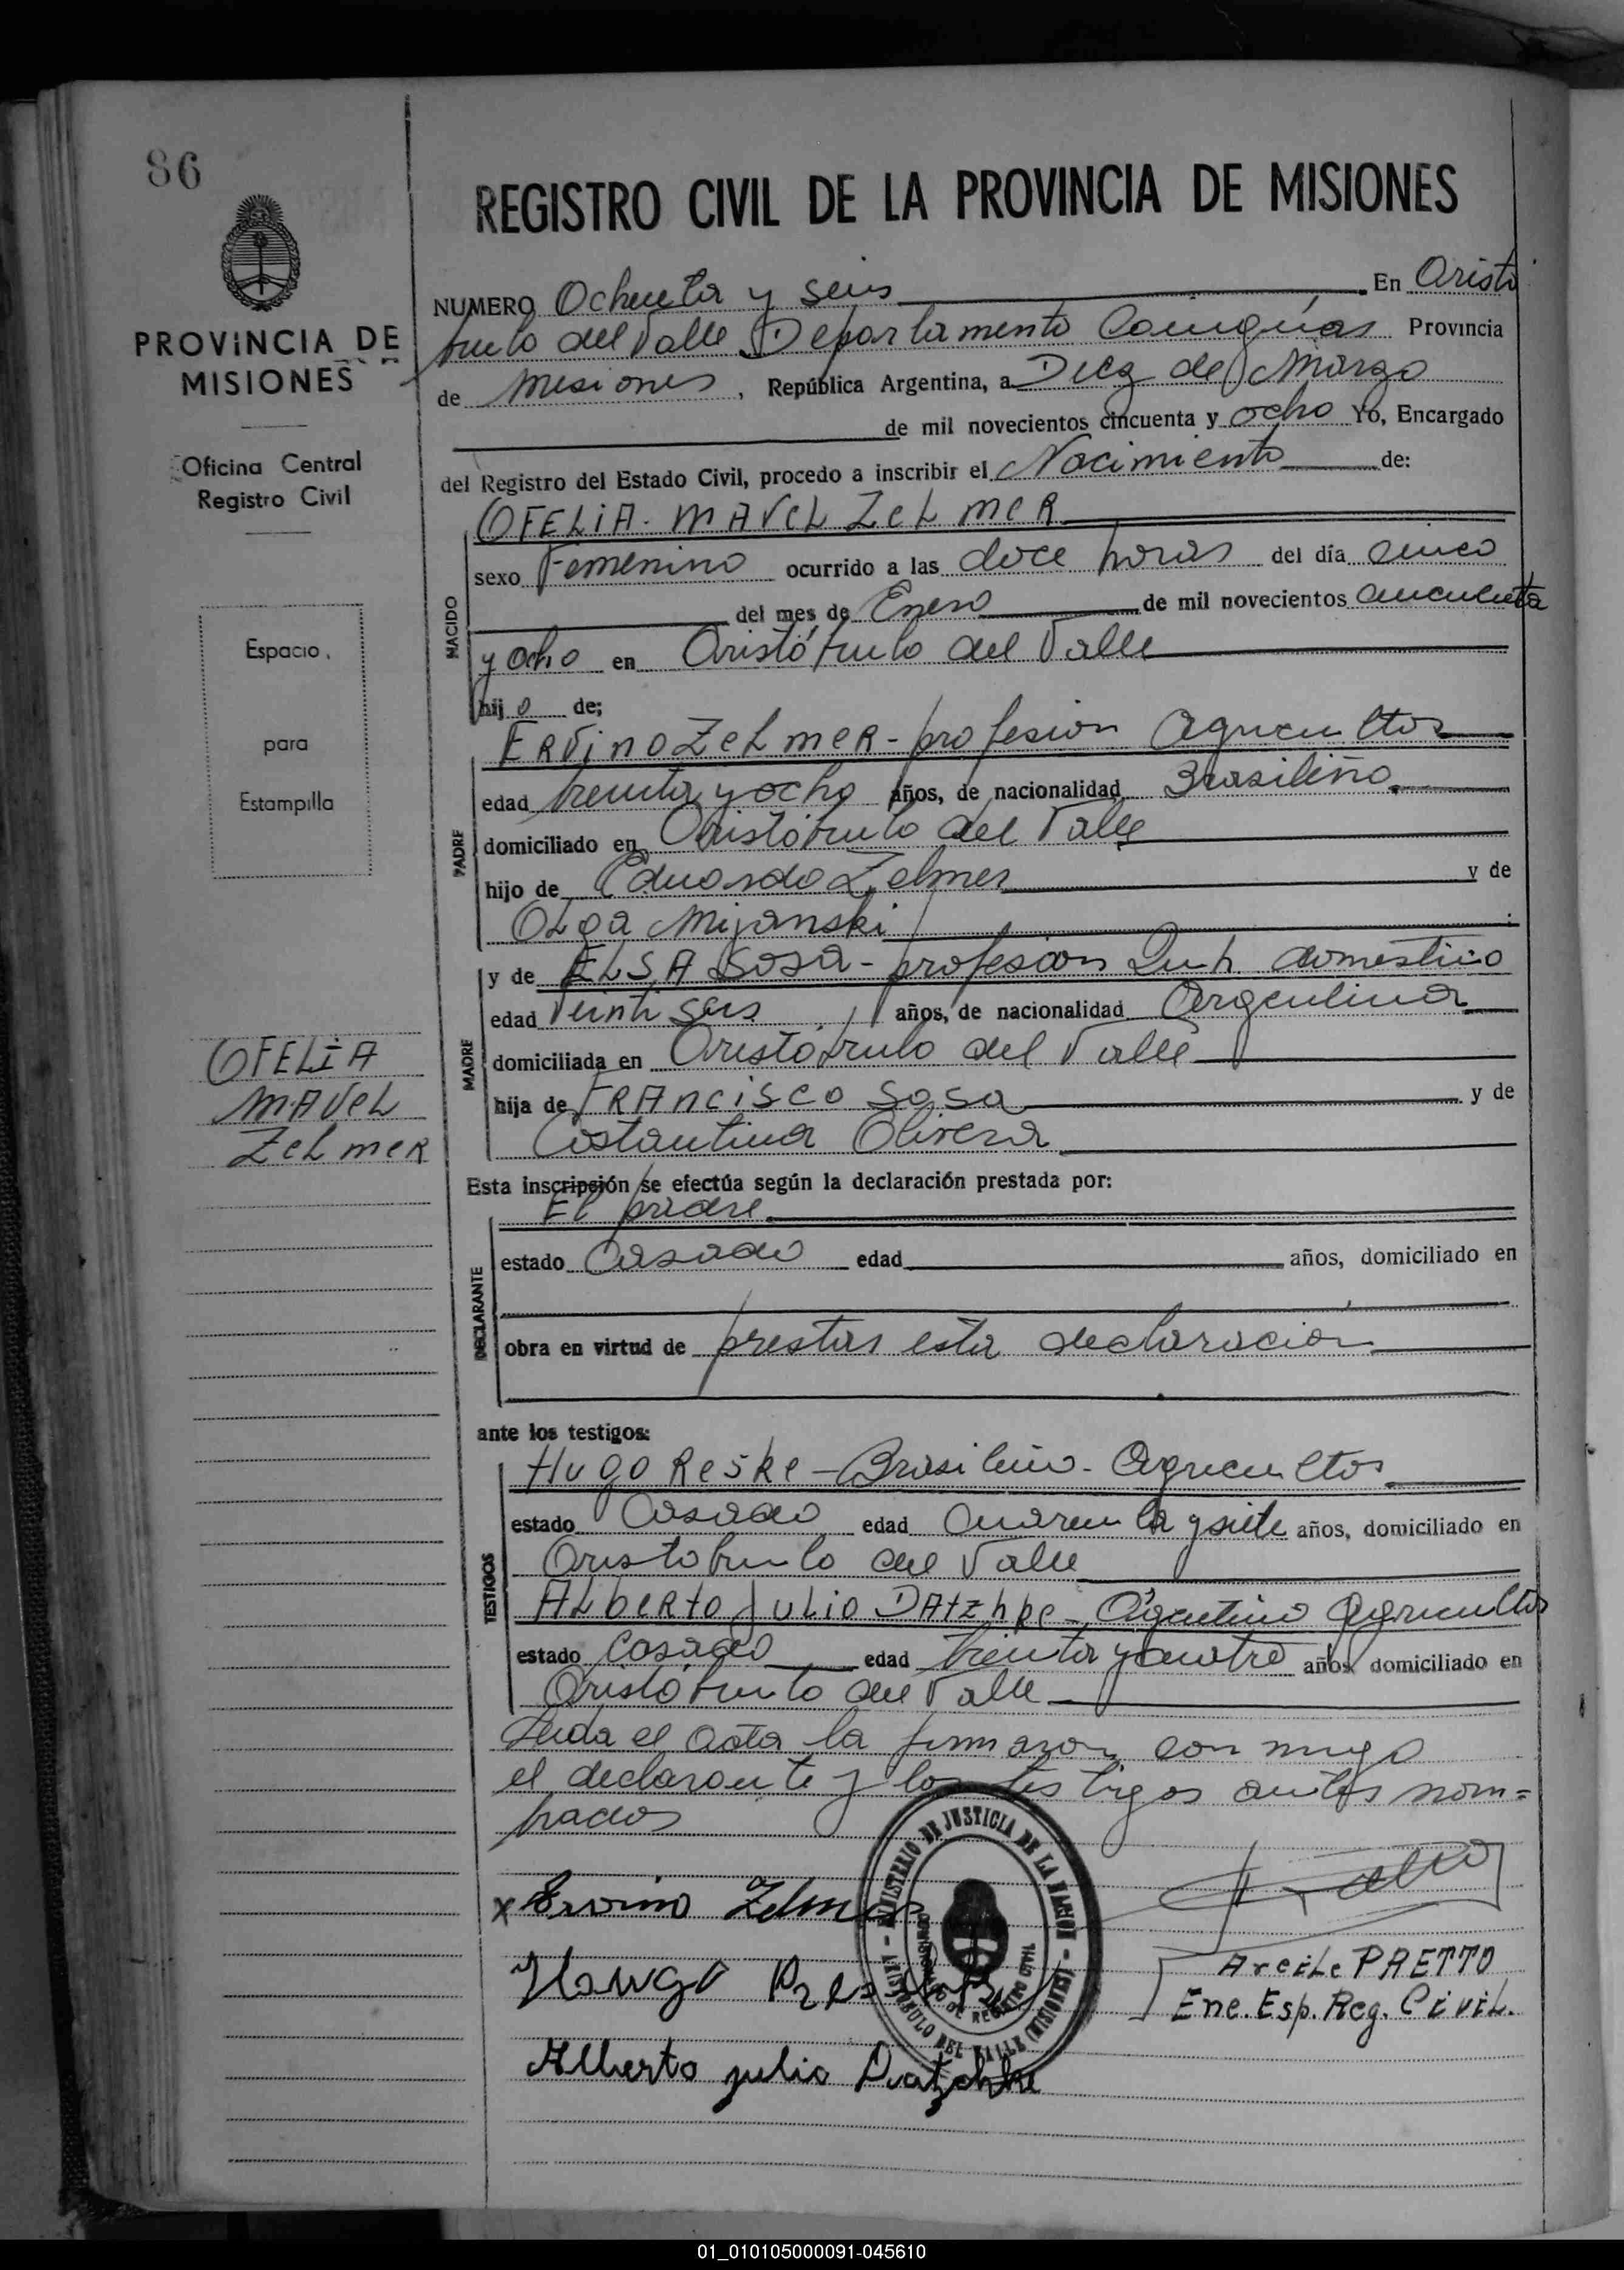 86
PROVINCIA DE
MISIONES
Oficina Central
Registro Civil
Espacio
para
Estampilla
OFELIA
MAVEL
ZELMER
REGISTRO CIVIL DE LA PROVINCIA DE MISIONES
NUMERO Ochenta y seis En Aristó
bulo del Valle Departamento Cainguás Provincia
de Misiones, República Argentina, a Diez de Marzo
de mil novecientos cincuenta y ocho Yo, Encargado
del Registro del Estado Civil, procedo a inscribir el Nacimiento de:
OFELIA. MAVEL ZELMER
NACIDO
sexo Femenino ocurrido a las doce horas del día cinco
del mes de Enero de mil novecientos cincuenta
y ocho en Aristóbulo del Valle
hijo de;
PADRE
ERVINO ZELMER - profesion Agricultor
edad treinta y ocho años, de nacionalidad Brasileño
domiciliado en Aristóbulo del Valle
hijo de Eduardo Zelmer y de
Olga Mijanski
MADRE
y de ELSA Sosa - profesion Queh domestico
edad Veintiseis años, de nacionalidad Argentina
domiciliada en Aristóbulo del Valle
hija de FRANCISCO Sosa y de
Costantina Olivera
Esta inscripsión se efectúa según la declaración prestada por:
DECLARANTE
El padre
estado Casado edad años, domiciliado en
obra en virtud de prestar esta declaración
ante los testigos:
TESTIGOS
Hugo Reske - Brasileño - Agricultor
estado Casado edad Cuarenta y siete años, domiciliado en
Aristobulo del Valle
Alberto Julio Datzhke - Argentino Agricultor
estado Casado edad treinta y cuatro años domiciliado en
Aristóbulo del Valle
Leida el acta la firmaron con migo
el declarante y los testigos antes nom=
brados
x Ervino Zelmer
Alberto julio Datzchke
Arcile PRETTO
Enc. Esp. Reg. Civil.
MINISTERIO DE JUSTICIA DE LA NACION
ARISTOBULO DEL VALLE (MISIONES)
DE REGISTRO CIVIL
01_010105000091-045610